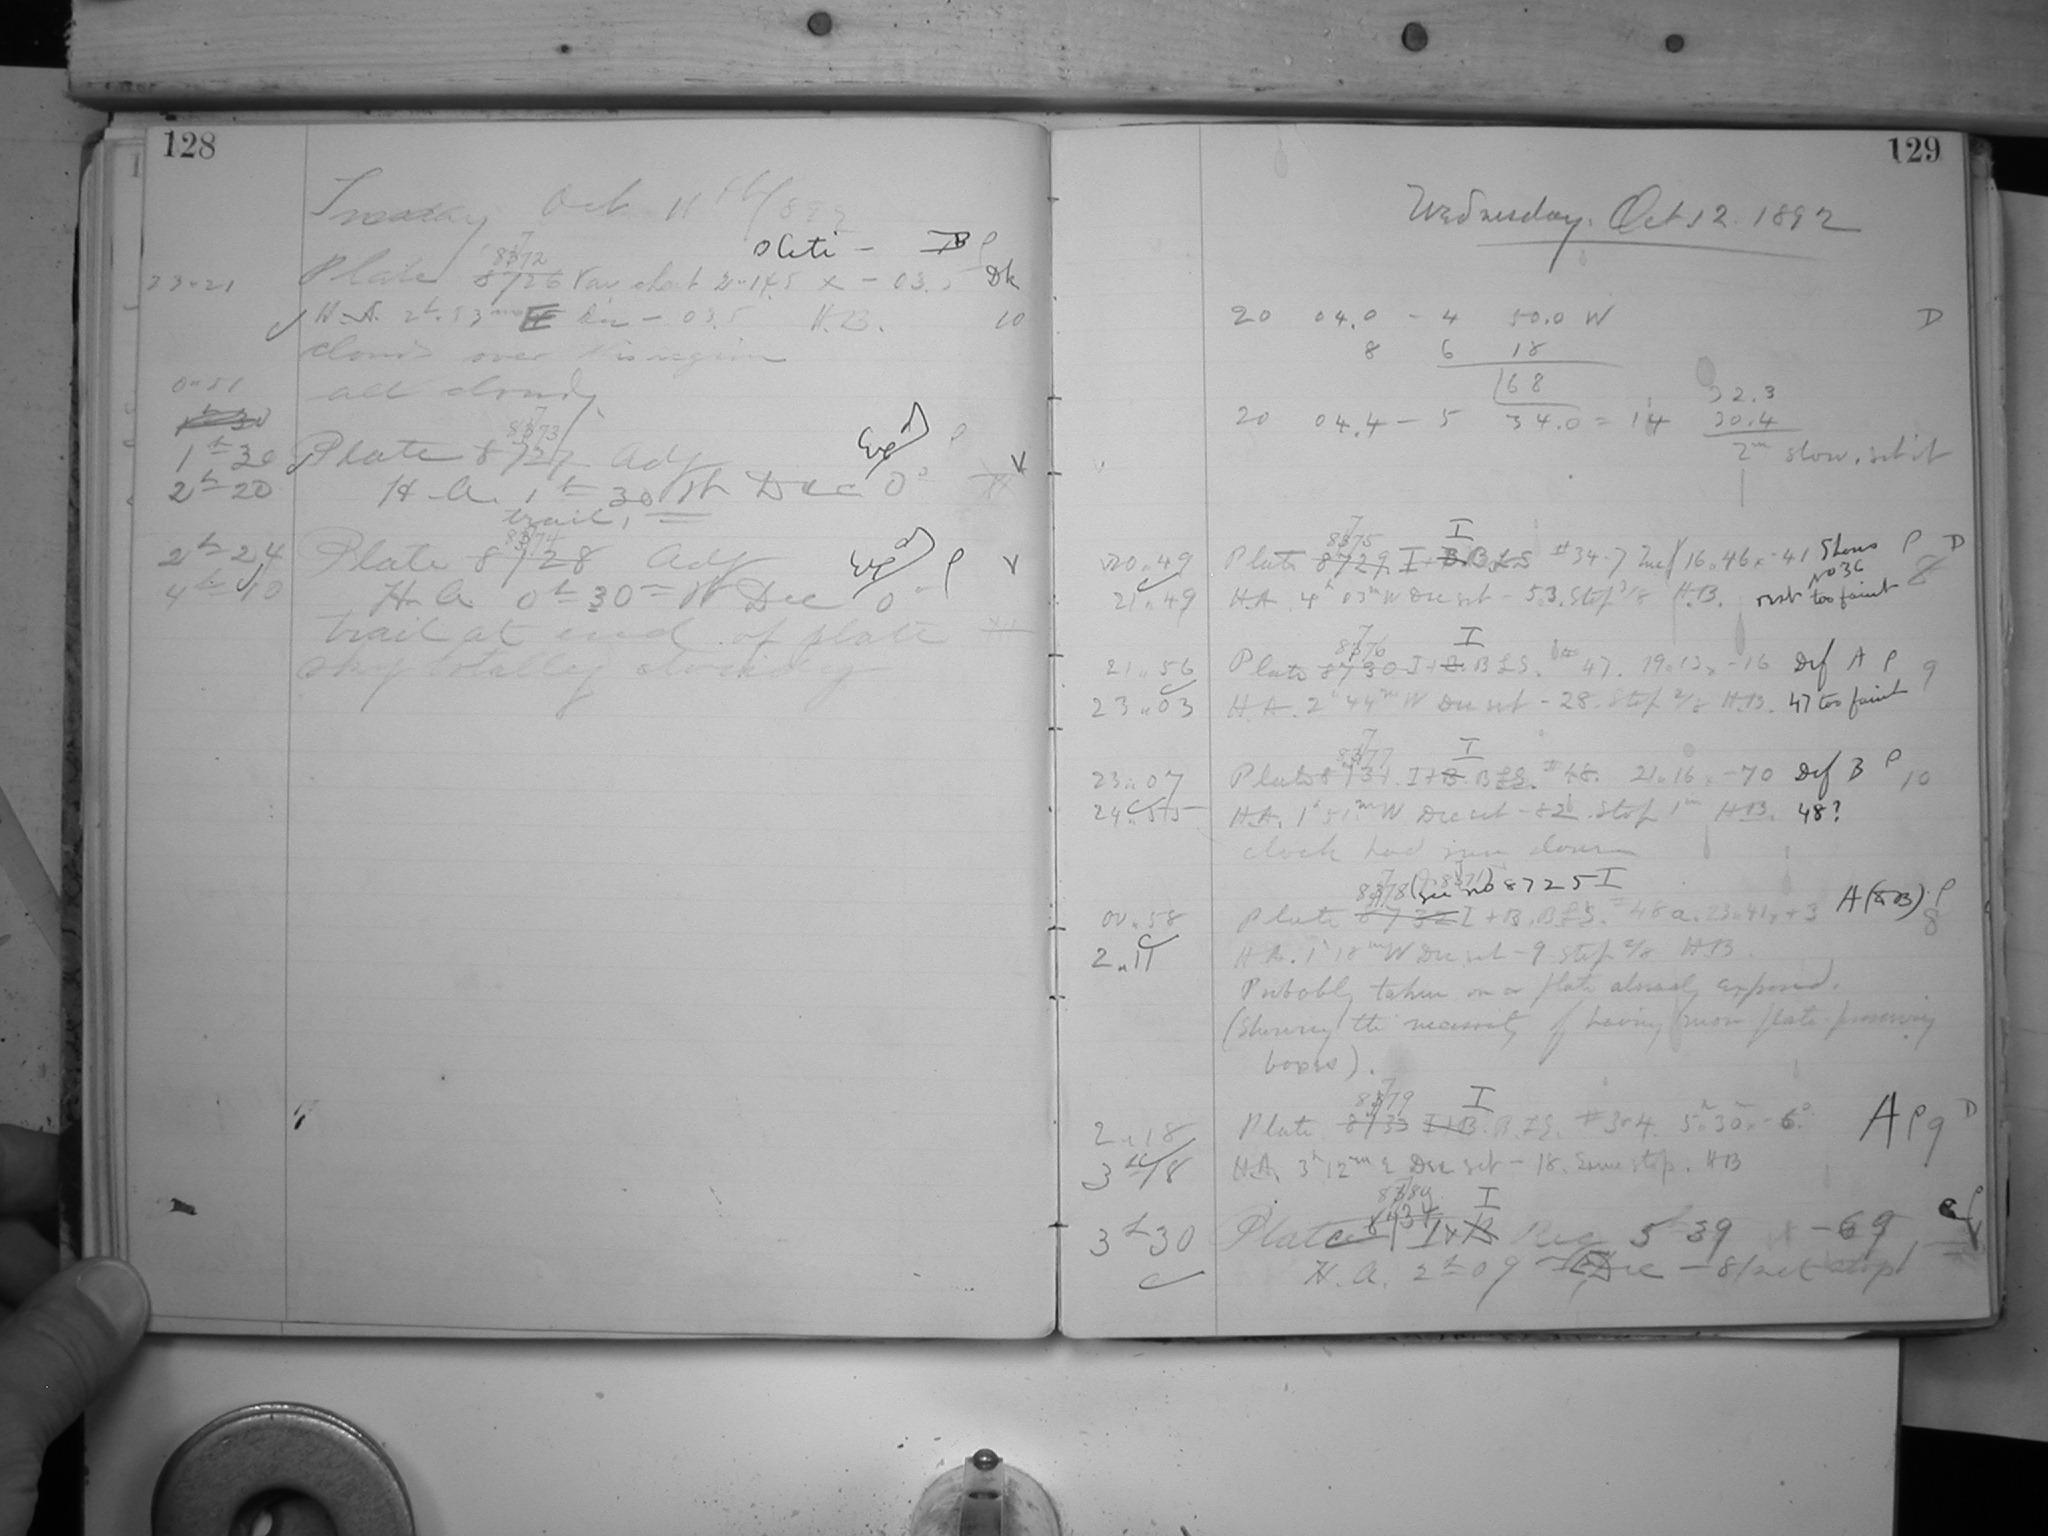 128
Tuesday Oct 11th 1892
Plate -
8372
23 21 Plate 8726 Var chart 2 145 x - 03. Dk
H.A. 2h 53m E Dec - 03.5 H.B. 10
clouds over this region
0 51 all cloudy
8373
1h 30 Plate 8727 Adj Expd P V
2h 20 H.A. 1h 30m W Dec 0°
trail,
8374
2h 24 Plate 8728 Adj Expd P V
4h 10 H.A. 0h 30m W Dec 0°
trail at end of plate
sky totally cloudy
129
Wednesday. Oct 12. 1892
20 04.0 - 4 50.0 W D
8 6 18
68
32.3
20 04.4 - 5 34.0 = 14 30.4
2m slow, set it
8375 I
20 49 Plate 8729 I + B. B £ S # 34-7 16 46 x -41 Shows P D
No 36
21 49 H.A. 4h 03m W Dec set - 53. Stop 2/8 H.B. rest too faint 8
8376 I
21 56 Plate 8730 I + B. B £ S. 47. 19 13 x -16 Def A P 9
23 03 H.A. 2h 44m W Dec set - 28. Stop 2/8 H.B. 47 too faint
8377 I
23 07 Plate 8731. I + B. B £ S. # 48. 21 16 x -70 Def B P 10
24 55 H.A. 1h 51m W Dec set - 82 . Stop 1m H.B. 48?
clock had run down
8378 (see no 8725 I
00 58 Plate 8732 I + B. B £ S. 48 a. 23 41 x +3 A (& B) P 8
2 11 H.A. 1h 18m W Dec set - 9 Stop 2/8 H.B
Probably taken on a plate already exposed.
(Showing the necessity of having more plate-preserving
boxes).
8379 I
2 18 Plate 8733 I + B. B £ S. # 304. 5h 30m - 6° A P 9 D
3 18 H.A. 3h 12m E Dec set - 18. Same stop. H B
8380 I
3h 30 Plate 8734 I + B Reg 5h 39 -69
H.A. 2h 09 Dec - 81 set stop 1